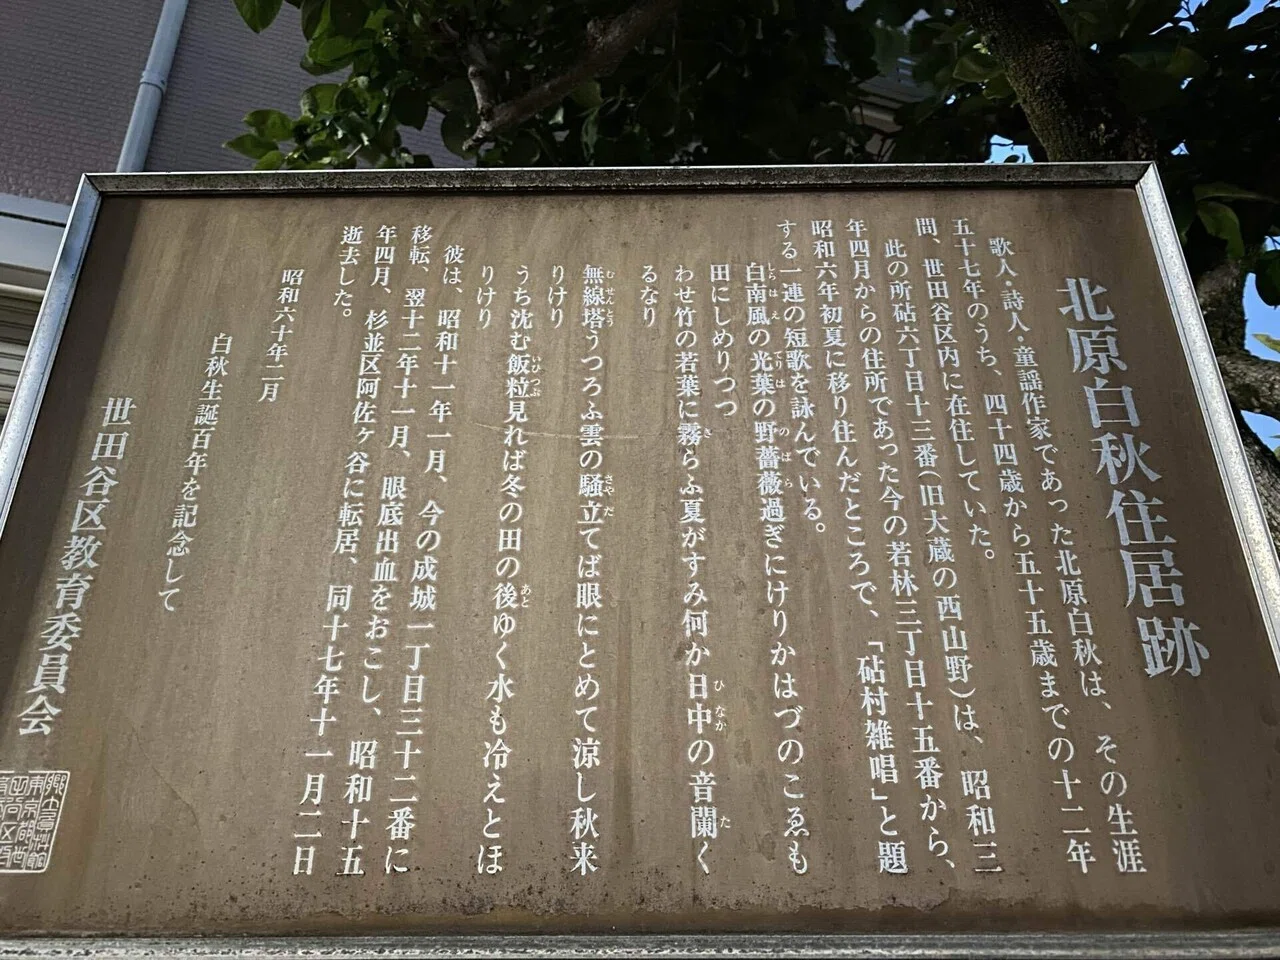 北原白秋住居跡
歌人・詩人・童謡作家であった北原白秋は、その生涯
五十七年のうち、四十四歳から五十五歳までの十二年
間、世田谷区内に在住していた。
此の所砧六丁目十三番(旧大蔵の西山野)は、昭和三
年四月からの住所であった今の若林三丁目十五番から、
昭和六年初夏に移り住んだところで、「砧村雑唱」と題
する一連の短歌を詠んでいる。
白南風の光葉の野薔薇過ぎにけりかはづのこゑも
田にしめりつつ
わせ竹の若葉に霧らふ夏がすみ何か日中の音闌く
るなり
無線塔うつろふ雲の騒立てば眼にとめて涼し秋来
りけり
うち沈む飯粒見れば冬の田の後ゆく水も冷えとほ
りけり
彼は、昭和十一年一月、今の成城一丁目三十二番に
移転、翌十二年十一月、眼底出血をおこし、昭和十五
年四月、杉並区阿佐ヶ谷に転居、同十七年十一月二日
逝去した。
昭和六十年二月
白秋生誕百年を記念して
世田谷区教育委員会